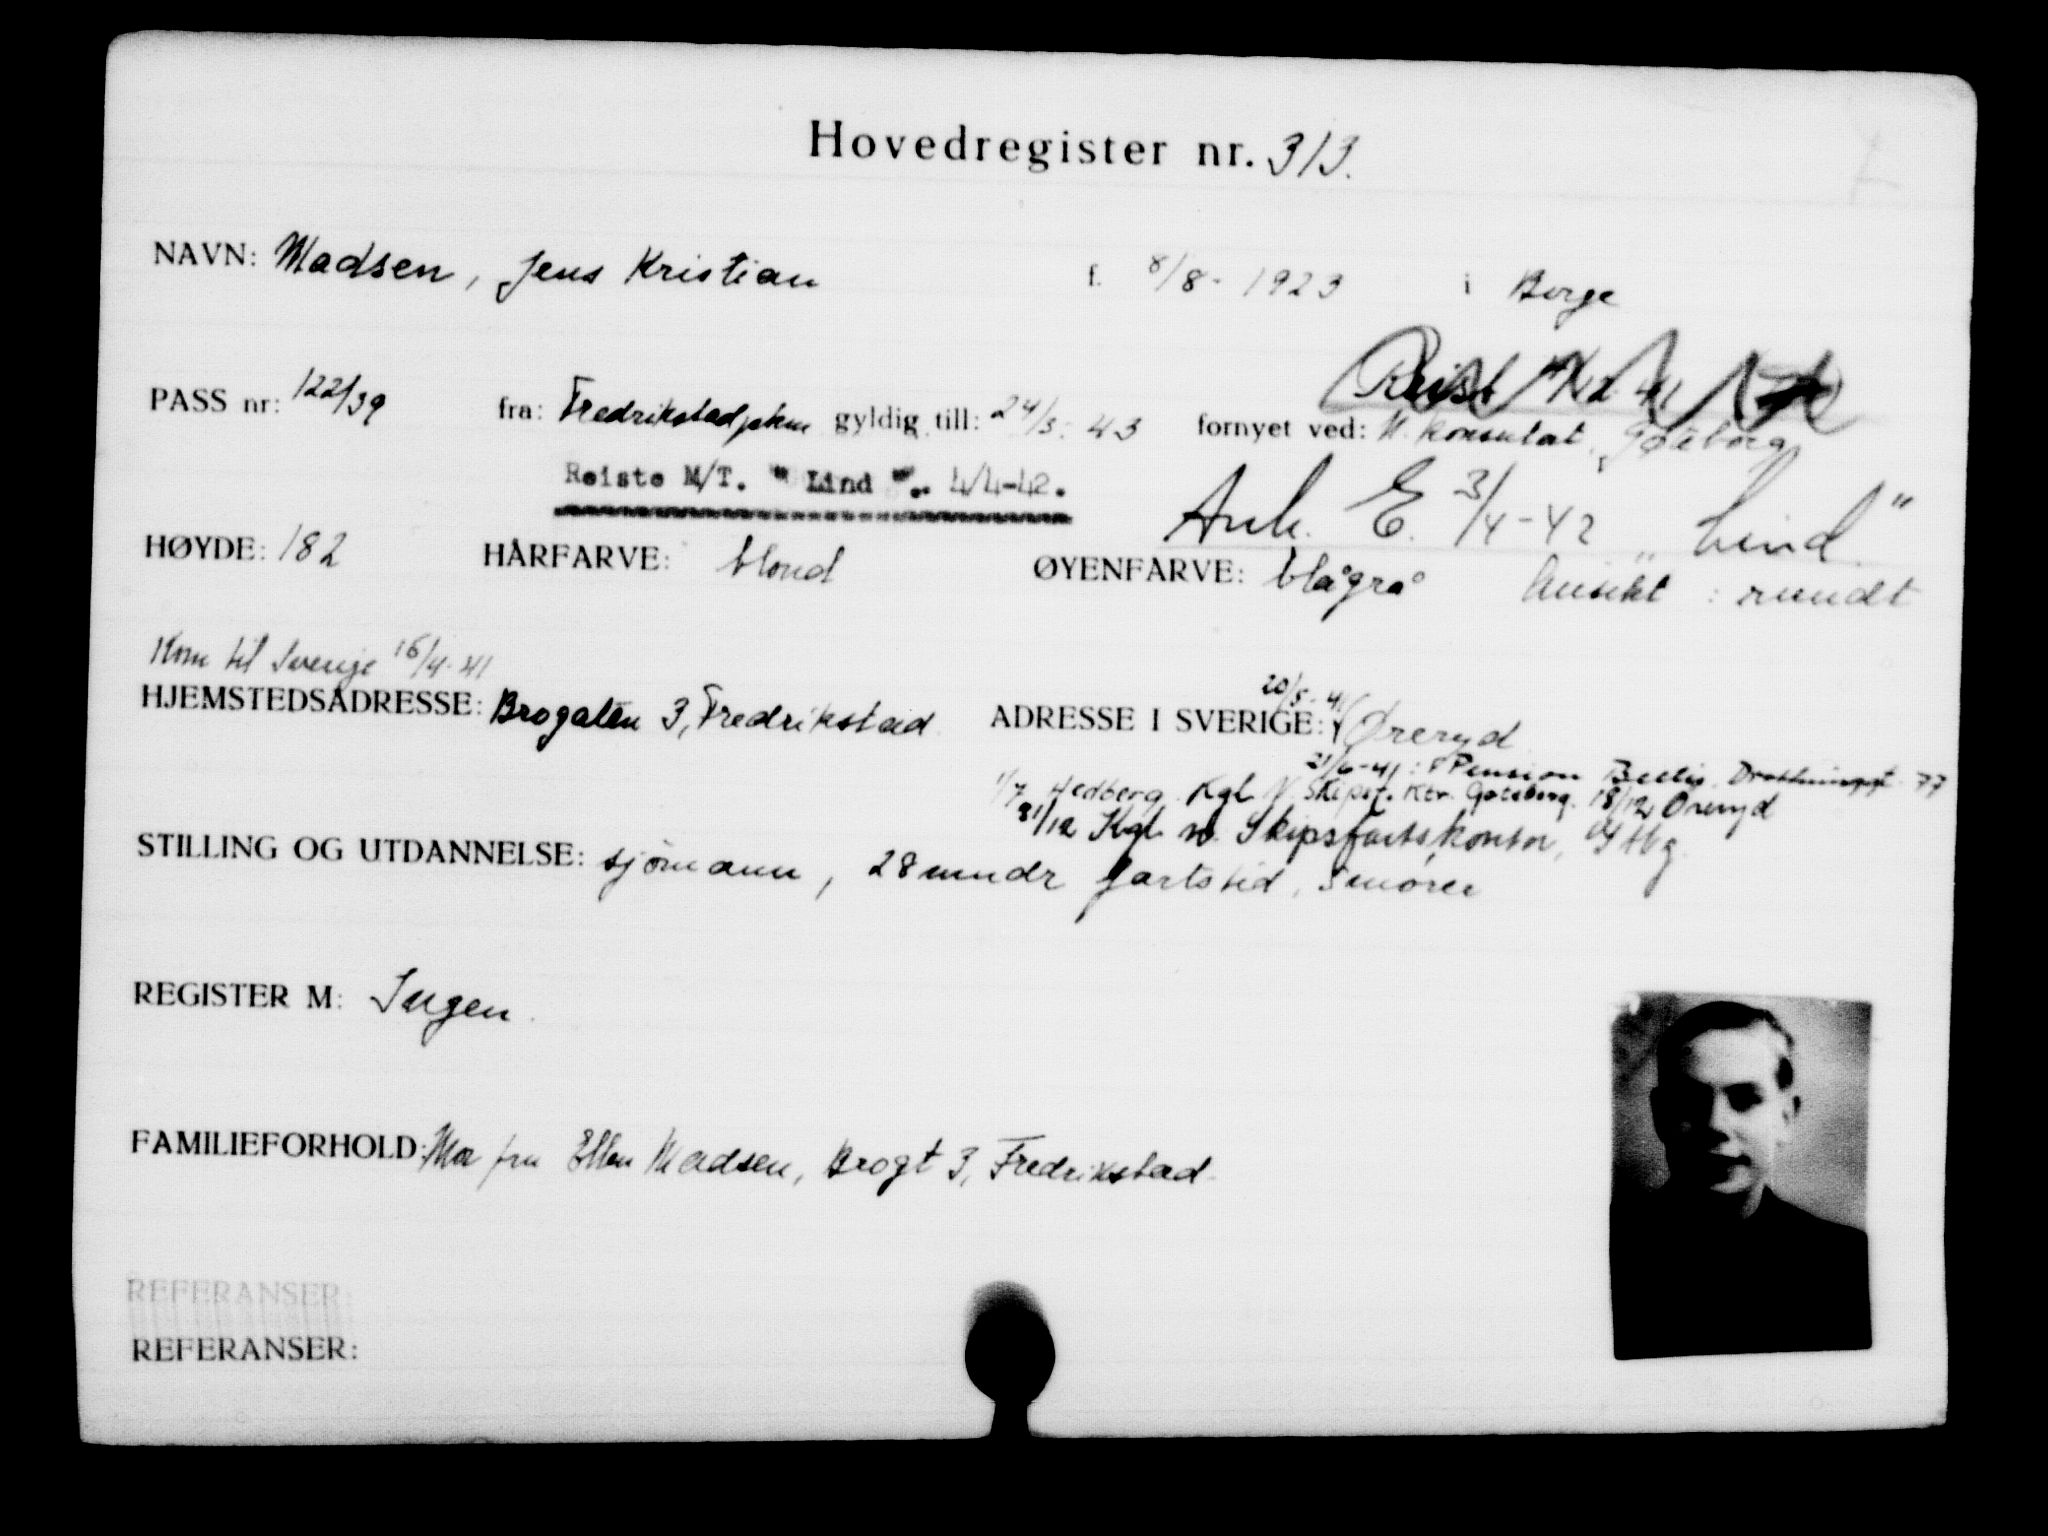 Hovedregister nr. 313.
NAVN: Madsen, Jens Kristian f. 8/8 - 1923 i Borge
Reist
PASS nr: 122/39 fra: Fredrikstad pkm gyldig till: 24/3. 43 fornyet ved: N. konsulat, Gøteborg
Reiste M/T. " Lind ".. 4/4-42.
Ank. E. 3/4-42 „Lind"
HØYDE: 182 HÅRFARVE: blond ØYENFARVE: blågrå Ansikt: rundt
Kom til Sverige 16/4-41
HJEMSTEDSADRESSE: Brogaten 3, Fredrikstad ADRESSE I SVERIGE: 20/5-41 Øreryd
21/6-41: Pension Drottninggt 77
1/7 Hedberg. Kgl. N. Skipsf. Ktr. Gøteborg. 18/12 Øreryd
31/12 Kgl. N. Skipsfartskontor, Gtbg.
STILLING OG UTDANNELSE: sjömann, 28 mndr fartstid, Smører
REGISTER M: Ingen.
FAMILIEFORHOLD: Mor fru Ellen Madsen, Brogt 3, Fredrikstad.
REFERANSER:
REFERANSER: